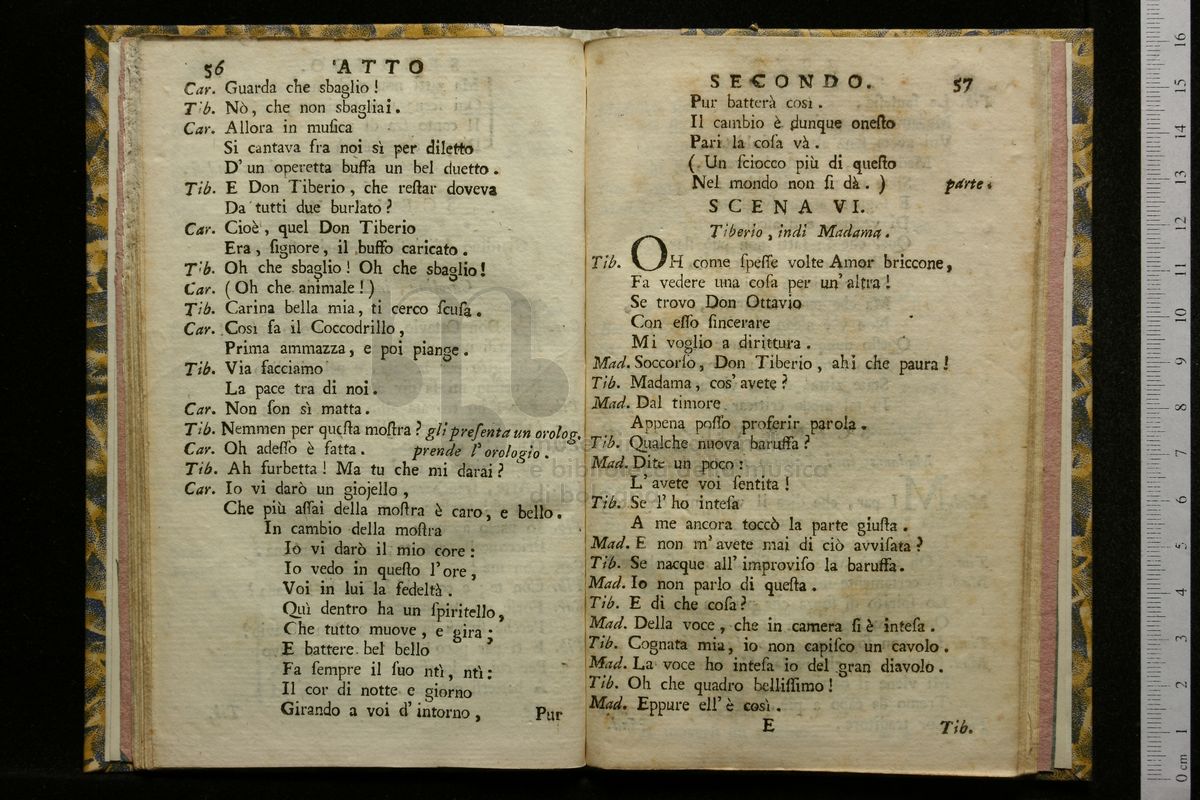 56 ATTO
Car. Guarda che sbaglio !
Tib. Nò, che non sbagliai.
Car. Allora in muſica
Si cantava fra noi sì per diletto
D' un operetta buffa un bel duetto.
Tib. E Don Tiberio, che reſtar doveva
Da tutti due burlato?
Car. Cioè, quel Don Tiberio
Era, ſignore, il buffo caricato.
Tib. Oh che sbaglio! Oh che sbaglio!
Car. (Oh che animale!)
Tib. Carina bella mia, ti cerco ſcuſa.
Car. Così fa il Coccodrillo,
Prima ammazza, e poi piange.
Tib. Via facciamo
La pace tra di noi.
Car. Non ſon sì matta.
Tib. Nemmen per queſta moſtra? gli preſenta un orolog.
Car. Oh adeſſo è fatta. prende l' orologio.
Tib. Ah furbetta! Ma tu che mi darai?
Car. Io vi darò un giojello,
Che più aſſai della moſtra è caro, e bello.
In cambio della moſtra
Io vi darò il mio core:
Io vedo in queſto l'ore,
Voi in lui la fedeltà.
Quì dentro ha un ſpiritello,
Che tutto muove, e gira;
E battere bel bello
Fa ſempre il ſuo ntì, ntì:
Il cor di notte e giorno
Girando a voi d' intorno,
Pur
SECONDO. 57
Pur batterà così.
Il cambio è dunque oneſto
Pari la coſa và.
(Un ſciocco più di queſto
Nel mondo non ſi dà.) parte.
SCENA VI.
Tiberio, indi Madama.
Tib. OH come ſpeſſe volte Amor briccone,
Fa vedere una coſa per un' altra!
Se trovo Don Ottavio
Con eſſo ſincerare
Mi voglio a dirittura.
Mad. Soccorſo, Don Tiberio, ahi che paura!
Tib. Madama, cos' avete?
Mad. Dal timore
Appena poſſo proferir parola.
Tib. Qualche nuova baruffa?
Mad. Dite un poco:
L' avete voi ſentita!
Tib. Se l' ho inteſa
A me ancora toccò la parte giuſta.
Mad. E non m' avete mai di ciò avviſata?
Tib. Se nacque all' improviſo la baruffa.
Mad. Io non parlo di queſta.
Tib. E di che coſa?
Mad. Della voce, che in camera ſi è inteſa.
Tib. Cognata mia, io non capiſco un cavolo.
Mad. La voce ho inteſa io del gran diavolo.
Tib. Oh che quadro belliſſimo!
Mad. Eppure ell' è così.
E Tib.
museo
e biblioteca della musica
di bologna
0 cm 1 2 3 4 5 6 7 8 9 10 11 12 13 14 15 16